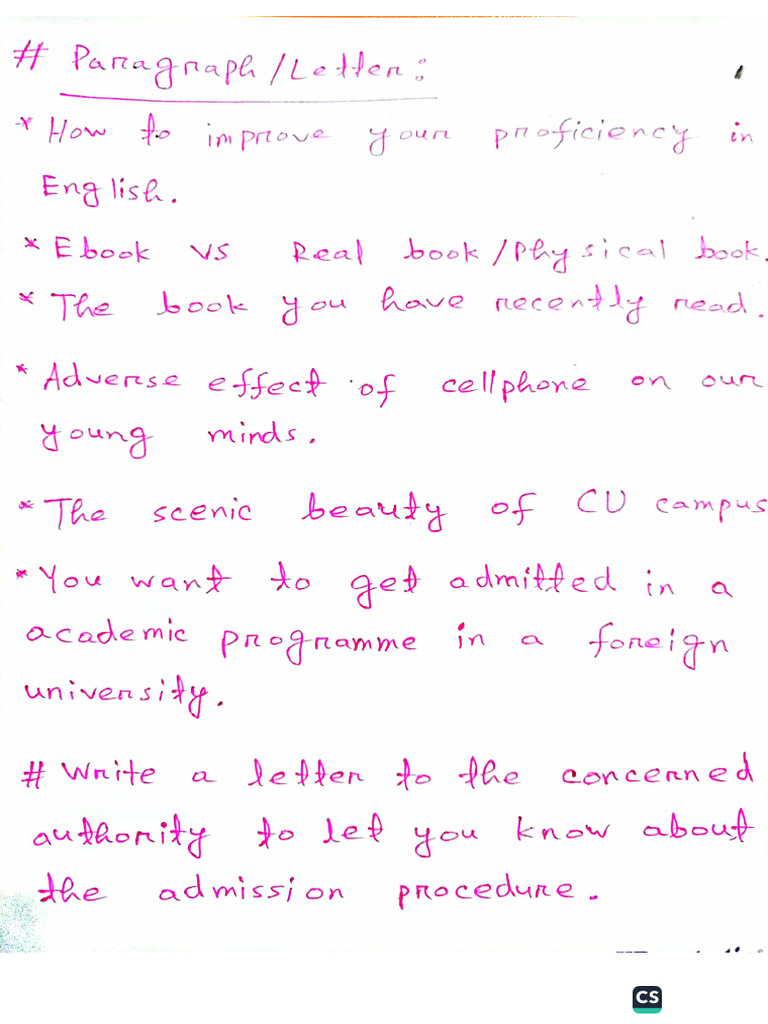 # Paragraph/Letter:
* How to improve your proficiency in
English.
* Ebook vs Real book/Physical book.
* The book you have recently read.
* Adverse effect of cellphone on our
young minds.
* The scenic beauty of CU campus
* You want to get admitted in a
academic programme in a foreign
university.
# Write a letter to the concerned
authority to let you know about
the admission procedure.
CS